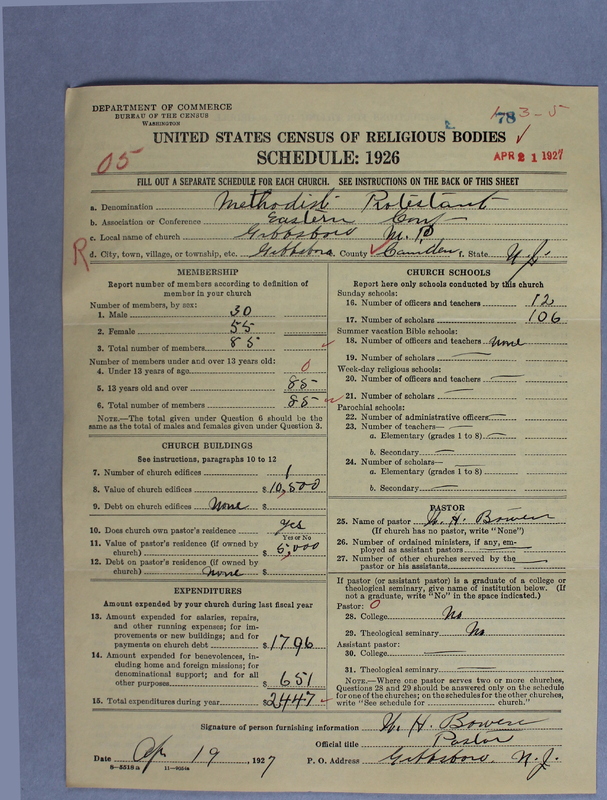 DEPARTMENT OF COMMERCE
BUREAU OF THE CENSUS
WASHINGTON
78 3-5
UNITED STATES CENSUS OF RELIGIOUS BODIES
05 SCHEDULE: 1926 APR 21 1927
FILL OUT A SEPARATE SCHEDULE FOR EACH CHURCH. SEE INSTRUCTIONS ON THE BACK OF THIS SHEET
a. Denomination Methodist Protestant
b. Association or Conference Eastern Conf
c. Local name of church Gibbsboro M.P.
R d. City, town, village, or township, etc. Gibbsboro County Camden f. State N.J.
MEMBERSHIP
Report number of members according to definition of member in your church
Number of members, by sex:
1. Male 30
2. Female 55
3. Total number of members 85
Number of members under and over 13 years old:
4. Under 13 years of age 0
5. 13 years old and over 85
6. Total number of members 85
NOTE.—The total given under Question 6 should be the
same as the total of males and females given under Question 3.
CHURCH BUILDINGS
See instructions, paragraphs 10 to 12
7. Number of church edifices 1
8. Value of church edifices $10,500
9. Debt on church edifices None $
10. Does church own pastor's residence yes
Yes or No
11. Value of pastor's residence (if owned by
church) $5,000
12. Debt on pastor's residence (if owned by
church) none $
EXPENDITURES
Amount expended by your church during last fiscal year
13. Amount expended for salaries, repairs,
and other running expenses; for im-
provements or new buildings; and for
payments on church debt $1796
14. Amount expended for benevolences, in-
cluding home and foreign missions; for
denominational support; and for all
other purposes $651
15. Total expenditures during year $2447
CHURCH SCHOOLS
Report here only schools conducted by this church
Sunday schools:
16. Number of officers and teachers 12
17. Number of scholars 106
Summer vacation Bible schools:
18. Number of officers and teachers none
19. Number of scholars
Week-day religious schools:
20. Number of officers and teachers
21. Number of scholars
Parochial schools:
22. Number of administrative officers
23. Number of teachers—
a. Elementary (grades 1 to 8)
b. Secondary
24. Number of scholars—
a. Elementary (grades 1 to 8)
b. Secondary
PASTOR
25. Name of pastor W. H. Bowen
(If church has no pastor, write "None")
26. Number of ordained ministers, if any, em-
ployed as assistant pastors
27. Number of other churches served by the
pastor or his assistants
If pastor (or assistant pastor) is a graduate of a college or
theological seminary, give name of institution below. (If
not a graduate, write "No" in the space indicated.)
Pastor: 0
28. College No
29. Theological seminary No
Assistant pastor:
30. College
31. Theological seminary
NOTE.—Where one pastor serves two or more churches,
Questions 28 and 29 should be answered only on the schedule
for one of the churches; on the schedules for the other churches,
write "See schedule for church."
Signature of person furnishing information W. H. Bowen
Official title Pastor
Date Ap 19, 1927 P. O. Address Gibbsboro N.J.
8-5518a 11-9054a